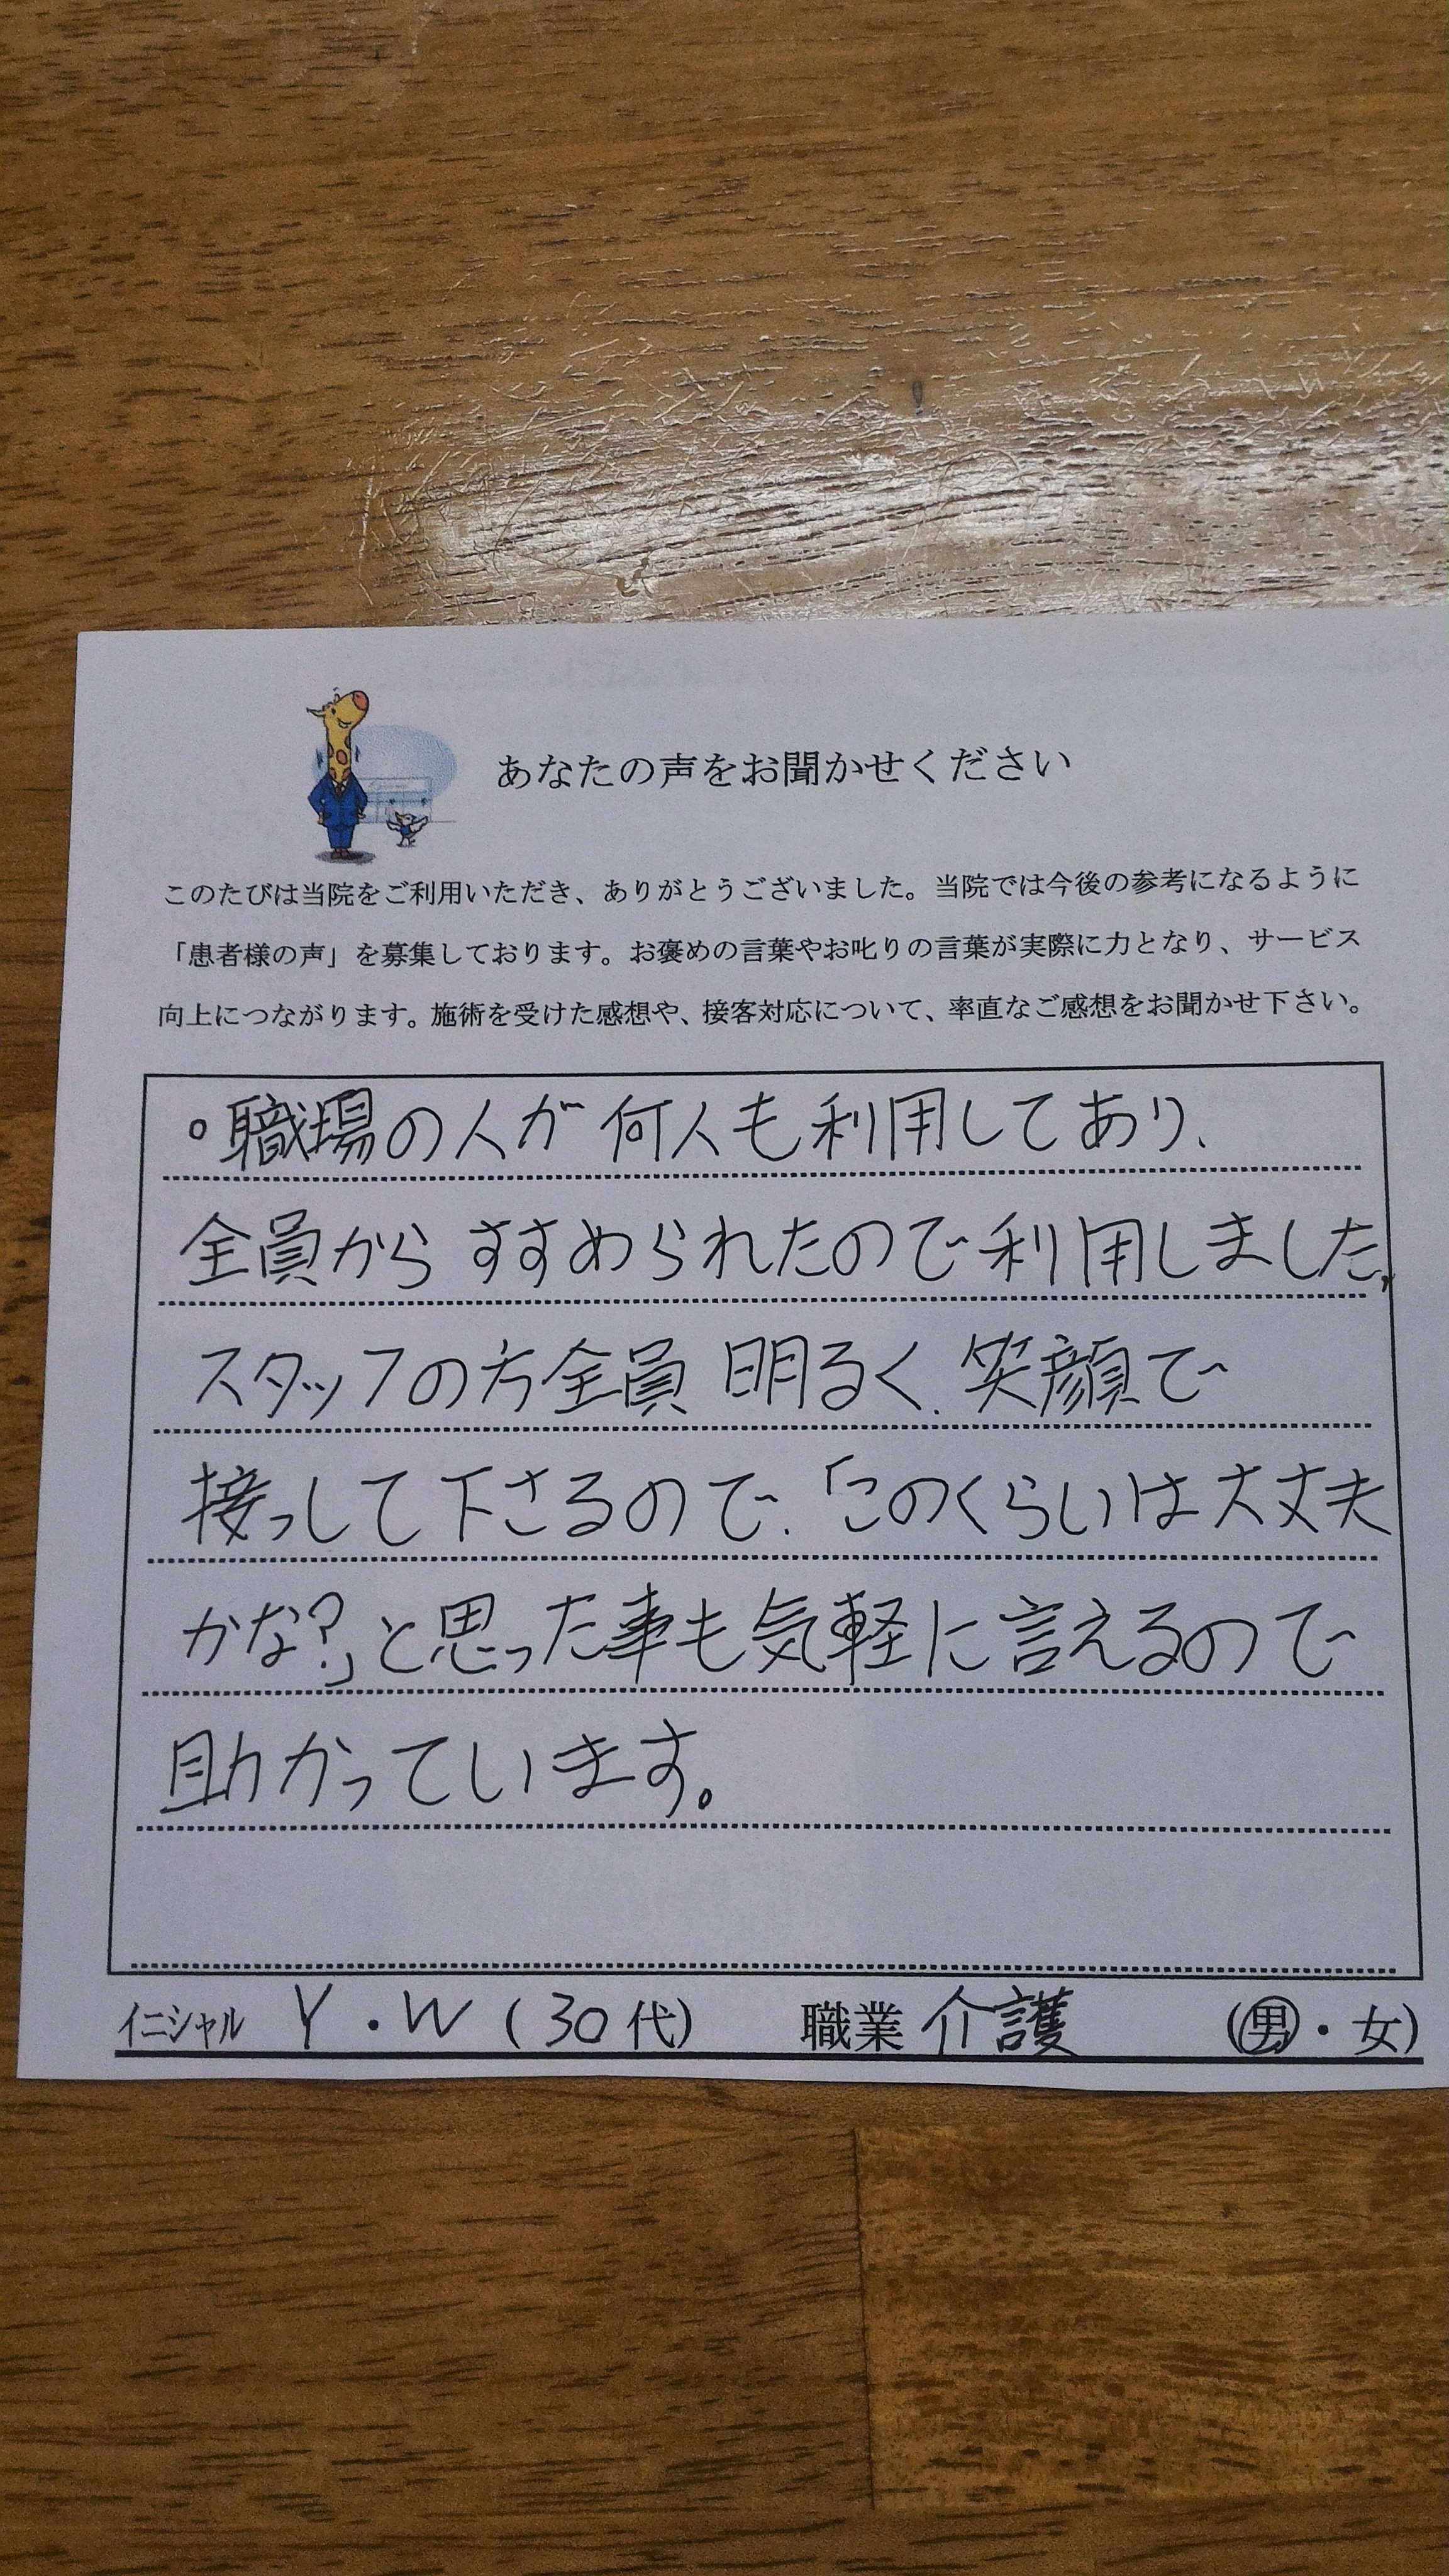 あなたの声をお聞かせください
このたびは当院をご利用いただき、ありがとうございました。当院では今後の参考になるように
「患者様の声」を募集しております。お褒めの言葉やお叱りの言葉が実際に力となり、サービス
向上につながります。施術を受けた感想や、接客対応について、率直なご感想をお聞かせ下さい。
○職場の人が何人も利用してあり、
全員からすすめられたので利用しました,
スタッフの方全員明るく、笑顔で
接っして下さるので、「このくらいは大丈夫
かな?」と思った事も気軽に言えるので
助かっています。
イニシャル Y・W(30代) 職業 介護 (男・女)